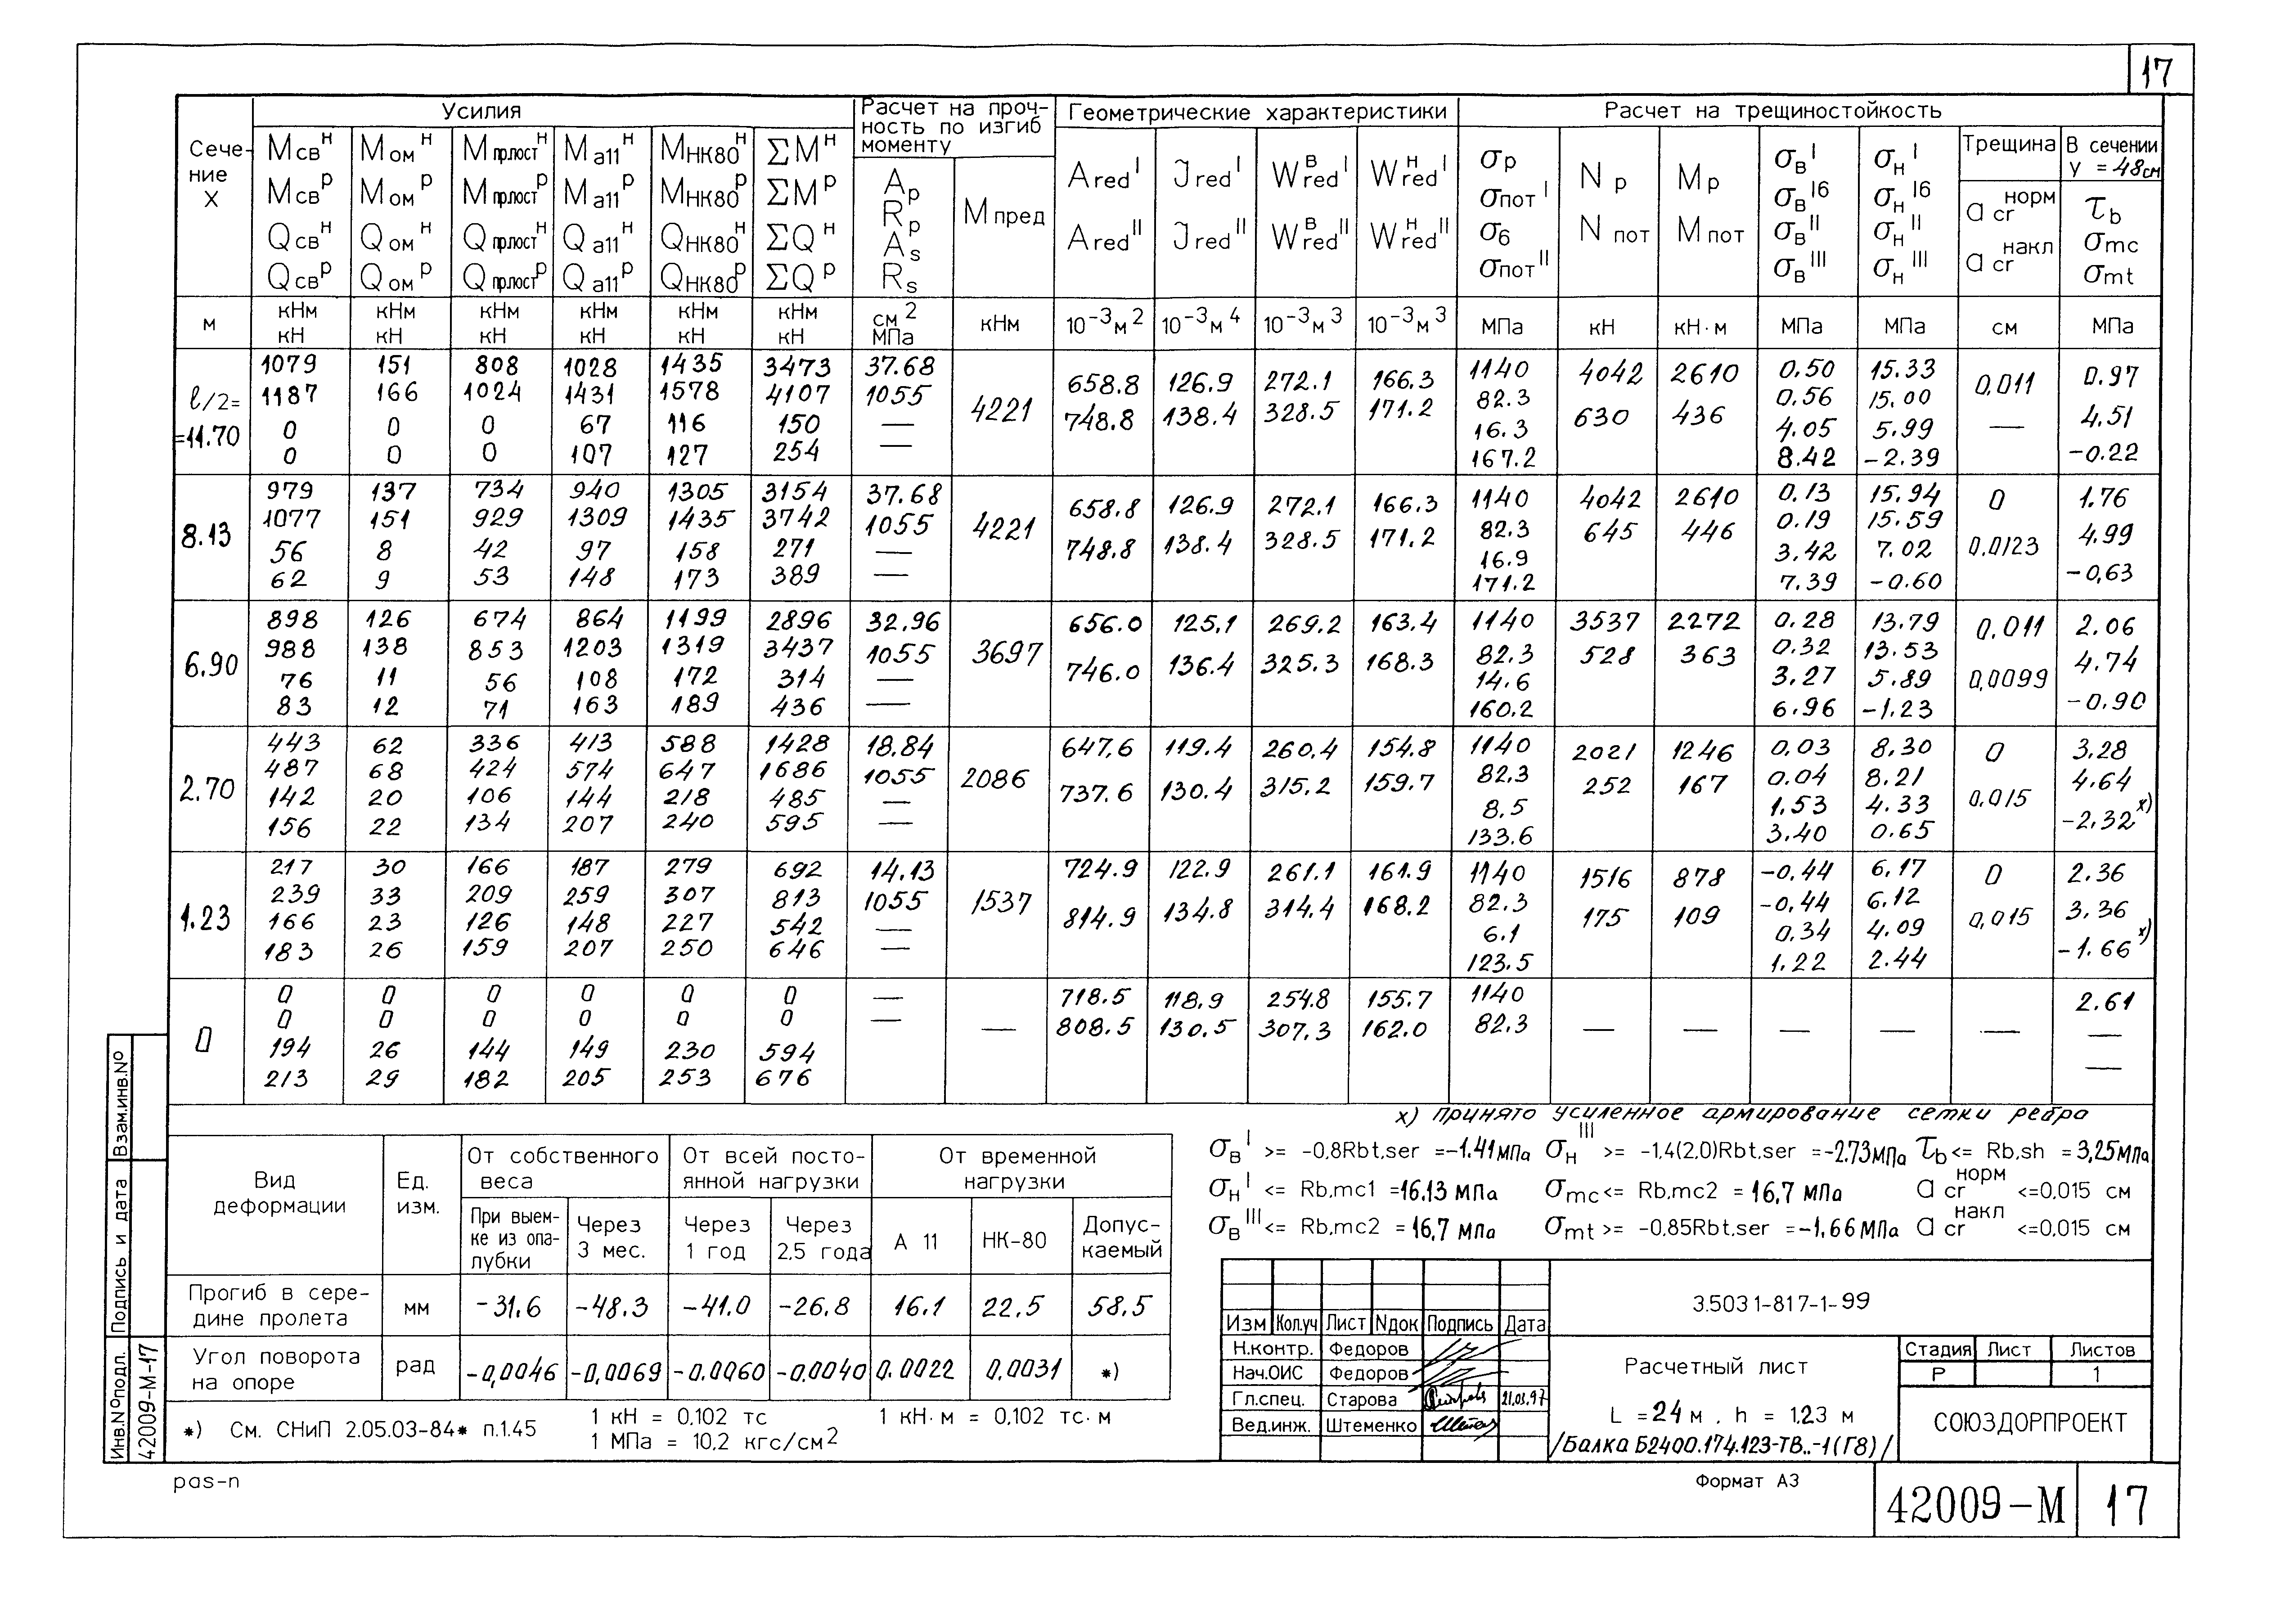 17
Усилия | Расчет на проч-ность по изгиб моменту | Геометрические характеристики | Расчет на трещиностойкость
Сече-ние X | Mсвᴴ Mсвᴾ Qсвᴴ Qсвᴾ | Mомᴴ Mомᴾ Qомᴴ Qомᴾ | Mпр.постᴴ Mпр.постᴾ Qпр.постᴴ Qпр.постᴾ | Mа11ᴴ Mа11ᴾ Qа11ᴴ Qа11ᴾ | Mнк80ᴴ Mнк80ᴾ Qнк80ᴴ Qнк80ᴾ | ΣMᴴ ΣMᴾ ΣQᴴ ΣQᴾ | Ap Rp As Rs | Mпред | Ared I Ared II | Jred I Jred II | Wᴮred I Wᴮred II | Wᴴred I Wᴴred II | σp σпот I σб σпот II | Np Nпот | Mp Mпот | σв I σв I6 σв II σв III | σн I σн I6 σн II σн III | Трещина a cr норм a cr накл | В сечении y = 48см τb σmc σmt
м | кНм кН | кНм кН | кНм кН | кНм кН | кНм кН | кНм кН | см² МПа | кНм | 10⁻³м² | 10⁻³м⁴ | 10⁻³м³ | 10⁻³м³ | МПа | кН | кН·м | МПа | МПа | см | МПа
ℓ/2= =11.70 | 1079 1187 0 0 | 151 166 0 0 | 808 1024 0 0 | 1028 1431 67 107 | 1435 1578 116 127 | 3473 4107 150 254 | 37.68 1055 — — | 4221 | 658.8 748.8 | 126.9 138.4 | 272.1 328.5 | 166.3 171.2 | 1140 82.3 16.3 167.2 | 4042 630 | 2610 436 | 0.50 0.56 4.05 8.42 | 15.33 15.00 5.99 -2.39 | 0,011 — | 0.97 4.51 -0.22
8.13 | 979 1077 56 62 | 137 151 8 9 | 734 929 42 53 | 940 1309 97 148 | 1305 1435 158 173 | 3154 3742 271 389 | 37.68 1055 — — | 4221 | 658.8 748.8 | 126.9 138.4 | 272.1 328.5 | 166.3 171.2 | 1140 82.3 16.9 171.2 | 4042 645 | 2610 446 | 0.13 0.19 3.42 7.39 | 15.94 15.59 7.02 -0.60 | 0 0.0123 | 1.76 4.99 -0,63
6.90 | 898 988 76 83 | 126 138 11 12 | 674 853 56 71 | 864 1203 108 163 | 1199 1319 172 189 | 2896 3437 314 436 | 32.96 1055 — — | 3697 | 656.0 746.0 | 125.1 136.4 | 269.2 325.3 | 163.4 168.3 | 1140 82.3 14.6 160.2 | 3537 528 | 2272 363 | 0.28 0.32 3.27 6.96 | 13.79 13.53 5.89 -1.23 | 0.011 0,0099 | 2.06 4.74 -0.90
2.70 | 443 487 142 156 | 62 68 20 22 | 336 424 106 134 | 413 574 144 207 | 588 647 218 240 | 1428 1686 485 595 | 18.84 1055 — — | 2086 | 647,6 737.6 | 119.4 130.4 | 260.4 315.2 | 154.8 159.7 | 1140 82.3 8.5 133.6 | 2021 252 | 1246 167 | 0.03 0.04 1.53 3.40 | 8.30 8.21 4.33 0.65 | 0 0.015 | 3.28 4.64 -2.32 x)
1.23 | 217 239 166 183 | 30 33 23 26 | 166 209 126 159 | 187 259 148 207 | 279 307 227 250 | 692 813 542 646 | 14.13 1055 — — | 1537 | 724.9 814.9 | 122.9 134.8 | 261.1 314.4 | 161.9 168.2 | 1140 82.3 6.1 123.5 | 1516 175 | 878 109 | -0,44 -0,44 0.34 1.22 | 6.17 6.12 4.09 2.44 | 0 0,015 | 2.36 3.36 -1.66 x)
0 | 0 0 194 213 | 0 0 26 29 | 0 0 144 182 | 0 0 149 205 | 0 0 230 253 | 0 0 594 676 | — — | — | 718.5 808.5 | 118.9 130.5 | 254.8 307.3 | 155.7 162.0 | 1140 82.3 | — | — | — | — | — | 2.61 — —
x) принято усиленное армирование сетки ребра
σв I >= -0,8Rbt,ser =-1.41МПа σн III >= -1,4(2,0)Rbt,ser =-2.73МПа τb<= Rb,sh =3,25МПа
σн I <= Rb,mc1 =16.13 МПа σmc<= Rb,mc2 =16,7 МПа a cr норм <=0,015 см
σв III<= Rb,mc2 =16,7 МПа σmt>= -0,85Rbt,ser =-1,66МПа a cr накл <=0,015 см
Вид деформации | Ед. изм. | От собственного веса | От всей посто-янной нагрузки | От временной нагрузки
При выем-ке из опа-лубки | Через 3 мес. | Через 1 год | Через 2,5 года | А 11 | НК-80 | Допус-каемый
Прогиб в сере-дине пролета | мм | -31.6 | -48.3 | -41.0 | -26.8 | 16.1 | 22.5 | 58.5
Угол поворота на опоре | рад | -0,0046 | -0,0069 | -0.0060 | -0.0040 | 0.0022 | 0.0031 | *)
*) См. СНиП 2.05.03-84* п.1.45
1 кН = 0,102 тс 1 кН·м = 0,102 тс·м
1 МПа = 10,2 кгс/см²
Изм Кол.уч Лист Nдок Подпись Дата
Н.контр. Федоров
Нач.ОИС Федоров
Гл.спец. Старова 21.03.97
Вед.инж. Штеменко
3.503 1-817-1-99
Расчетный лист
L = 24 м , h = 1.23 м
/Балка Б2400.174.123-ТВ..-1(Г8)/
Стадия Лист Листов
Р 1
СОЮЗДОРПРОЕКТ
Инв.Nºподл. Подпись и дата Взам.инв.Nº
42009-М-17
pas-n
Формат А3
42009-М 17